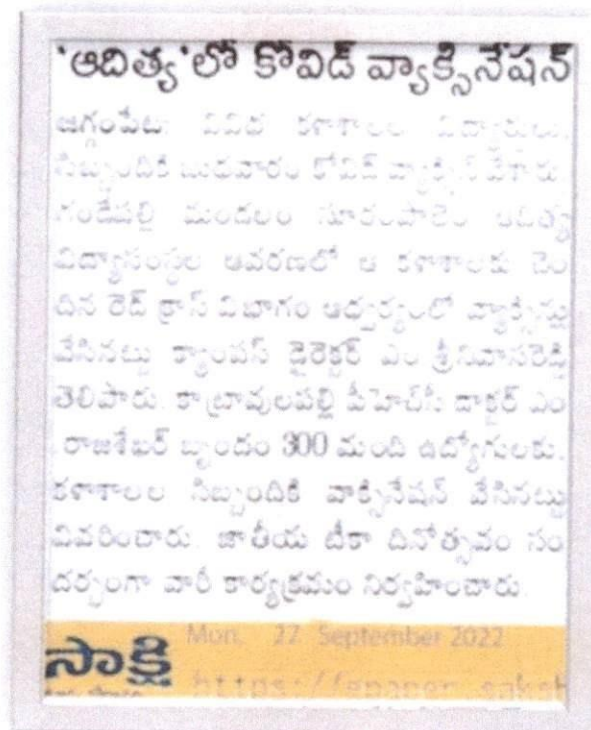 'ఆదిత్య'లో కోవిడ్ వ్యాక్సినేషన్
జగ్గంపేట: వివిధ కళాశాలల విద్యార్థులు,
సిబ్బందికి బుధవారం కోవిడ్ వ్యాక్సిన్ వేశారు.
గండేపల్లి మండలం సూరంపాలెం ఆదిత్య
విద్యాసంస్థల ఆవరణలో ఆ కళాశాలకు చెం
దిన రెడ్ క్రాస్ విభాగం ఆధ్వర్యంలో వ్యాక్సిన్లు
వేసినట్టు క్యాంపస్ డైరెక్టర్ ఎం శ్రీనివాసరెడ్డి
తెలిపారు. కాట్రావులపల్లి పీహెచ్‌సీ డాక్టర్ ఎం
.రాజశేఖర్ బృందం 300 మంది ఉద్యోగులకు,
కళాశాలల సిబ్బందికి వాక్సినేషన్ వేసినట్టు
వివరించారు. జాతీయ టీకా దినోత్సవం సం
దర్భంగా వారీ కార్యక్రమం నిర్వహించారు.
సాక్షి
Mon, 27 September 2022
https://epaper.saksh